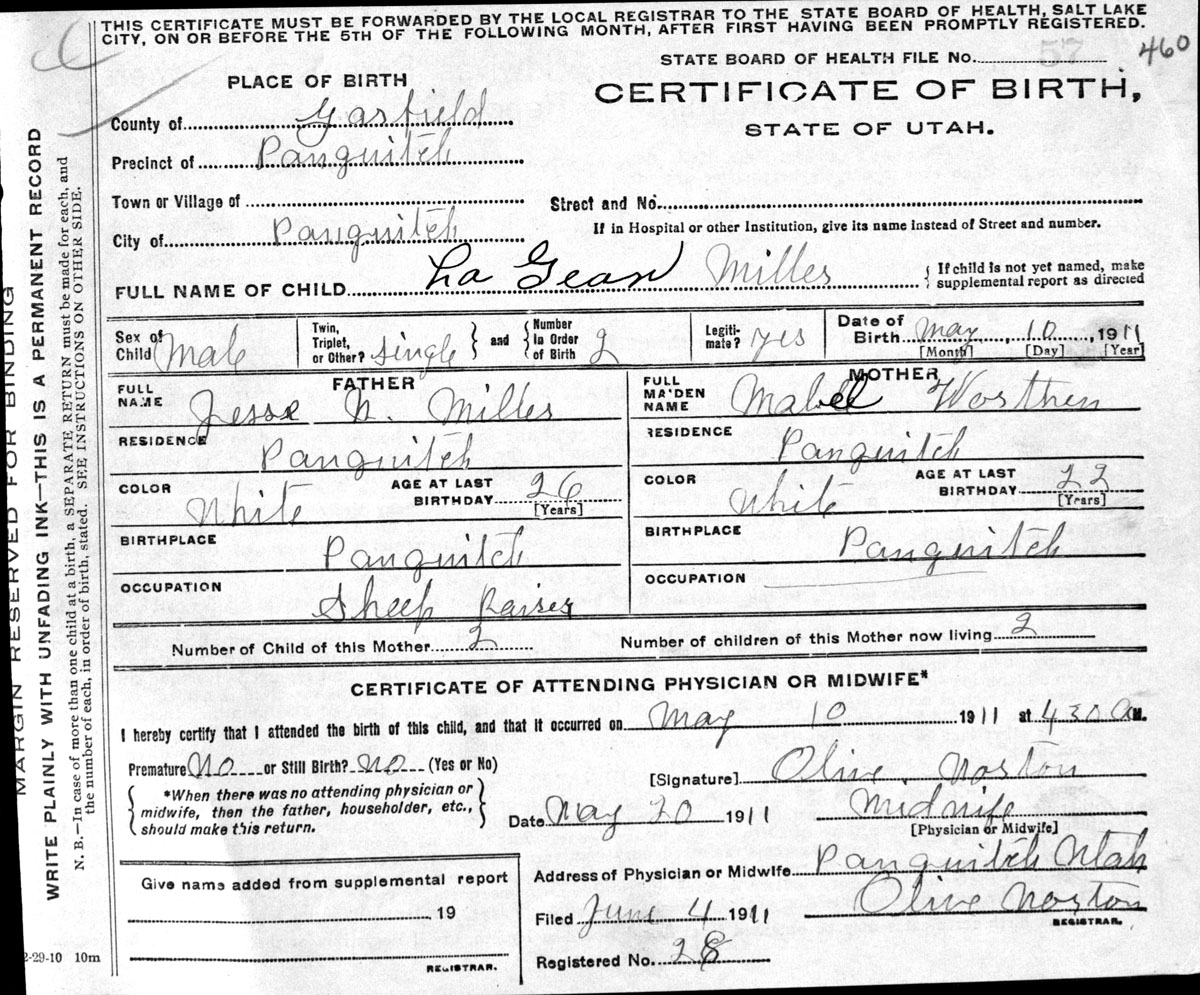 THIS CERTIFICATE MUST BE FORWARDED BY THE LOCAL REGISTRAR TO THE STATE BOARD OF HEALTH, SALT LAKE
CITY, ON OR BEFORE THE 5TH OF THE FOLLOWING MONTH, AFTER FIRST HAVING BEEN PROMPTLY REGISTERED.
STATE BOARD OF HEALTH FILE No. 57 460
PLACE OF BIRTH
CERTIFICATE OF BIRTH,
STATE OF UTAH.
County of Garfield
Precinct of Panguitch
Town or Village of
Street and No.
City of Panguitch
If in Hospital or other Institution, give its name instead of Street and number.
FULL NAME OF CHILD La Gean Milles
If child is not yet named, make
supplemental report as directed
Sex of Child Male
Twin, Triplet, or Other? single
and Number in Order of Birth 2
Legitimate? yes
Date of Birth May 10, 1911
[Month] [Day] [Year]
FATHER
FULL NAME Jesse N. Milles
RESIDENCE Panguitch
COLOR White
AGE AT LAST BIRTHDAY 26
[Years]
BIRTHPLACE Panguitch
OCCUPATION Sheep Raiser
MOTHER
FULL MAIDEN NAME Mabell Worthen
RESIDENCE Panguitch
COLOR White
AGE AT LAST BIRTHDAY 22
[Years]
BIRTHPLACE Panguitch
OCCUPATION
Number of Child of this Mother 2
Number of children of this Mother now living 2
CERTIFICATE OF ATTENDING PHYSICIAN OR MIDWIFE*
I hereby certify that I attended the birth of this child, and that it occurred on May 10 1911 at 430 A M.
Premature No or Still Birth? No (Yes or No)
[Signature] Olive Norton
*When there was no attending physician or
midwife, then the father, householder, etc.,
should make this return.
Date May 20 1911
Midwife
[Physician or Midwife]
Address of Physician or Midwife Panguitch Utah
Give name added from supplemental report
19
REGISTRAR.
Filed June 4 1911
Olive Norton
REGISTRAR.
Registered No. 28
2-29-10 10m
MARGIN RESERVED FOR BINDING
WRITE PLAINLY WITH UNFADING INK—THIS IS A PERMANENT RECORD
N. B.—In case of more than one child at a birth, a SEPARATE RETURN must be made for each, and
the number of each, in order of birth, stated. SEE INSTRUCTIONS ON OTHER SIDE.